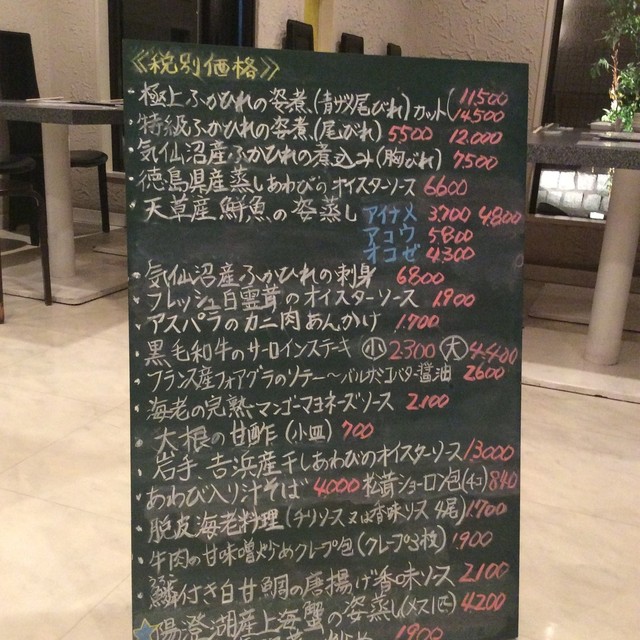 ≪税別価格≫
・極上ふかひれの姿煮(青ザメ尾びれ)カット(11,500
14,500
・特級ふかひれの姿煮(尾びれ) 5500 12,000
・気仙沼産ふかひれの煮込み(胸びれ) 7,500
・徳島県産蒸しあわびのオイスターソース 6600
・天草産鮮魚の姿蒸し アイナメ 3,700 4,800
アコウ 5,800
オコゼ 4,300
・気仙沼産ふかひれの刺身 6800
・フレッシュ白霊茸のオイスターソース 1,900
・アスパラのカニ肉あんかけ 1,700
・黒毛和牛のサーロインステーキ 小 2,300 大 4,400
・フランス産フォアグラのソテー〜バルサミコバター醤油 2600
・海老の完熟マンゴーマヨネーズソース 2,100
・大根の甘酢(小皿) 700
・岩手、吉浜産干しあわびのオイスターソース 13,000
・あわび入り汁そば 4,000 松茸ショーロン包(4コ) 840
・脆皮海老料理(チリソース又は香味ソース 4尾) 1,700
・牛肉の甘味噌炒めクレープ包(クレープ3枚) 1,900
・鱗付き白甘鯛の唐揚げ香味ソース 2,100
陽澄湖産上海蟹の姿蒸し(メス1匹) 4200
1900